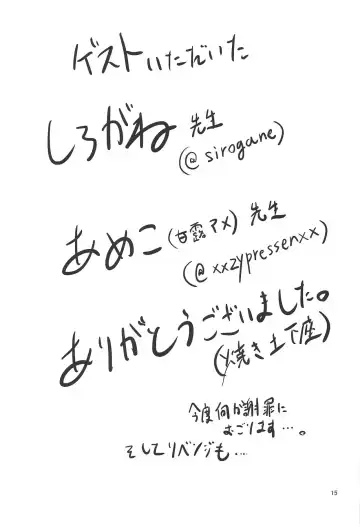 ゲストいただいた
しろがね先生
(@sirogane)
あめこ(甘露アメ)先生
(@xxzypressenxx)
ありがとうございました。
(焼き土下座)
今度何か謝罪に
おごります…。
そしてリベンジも…
15